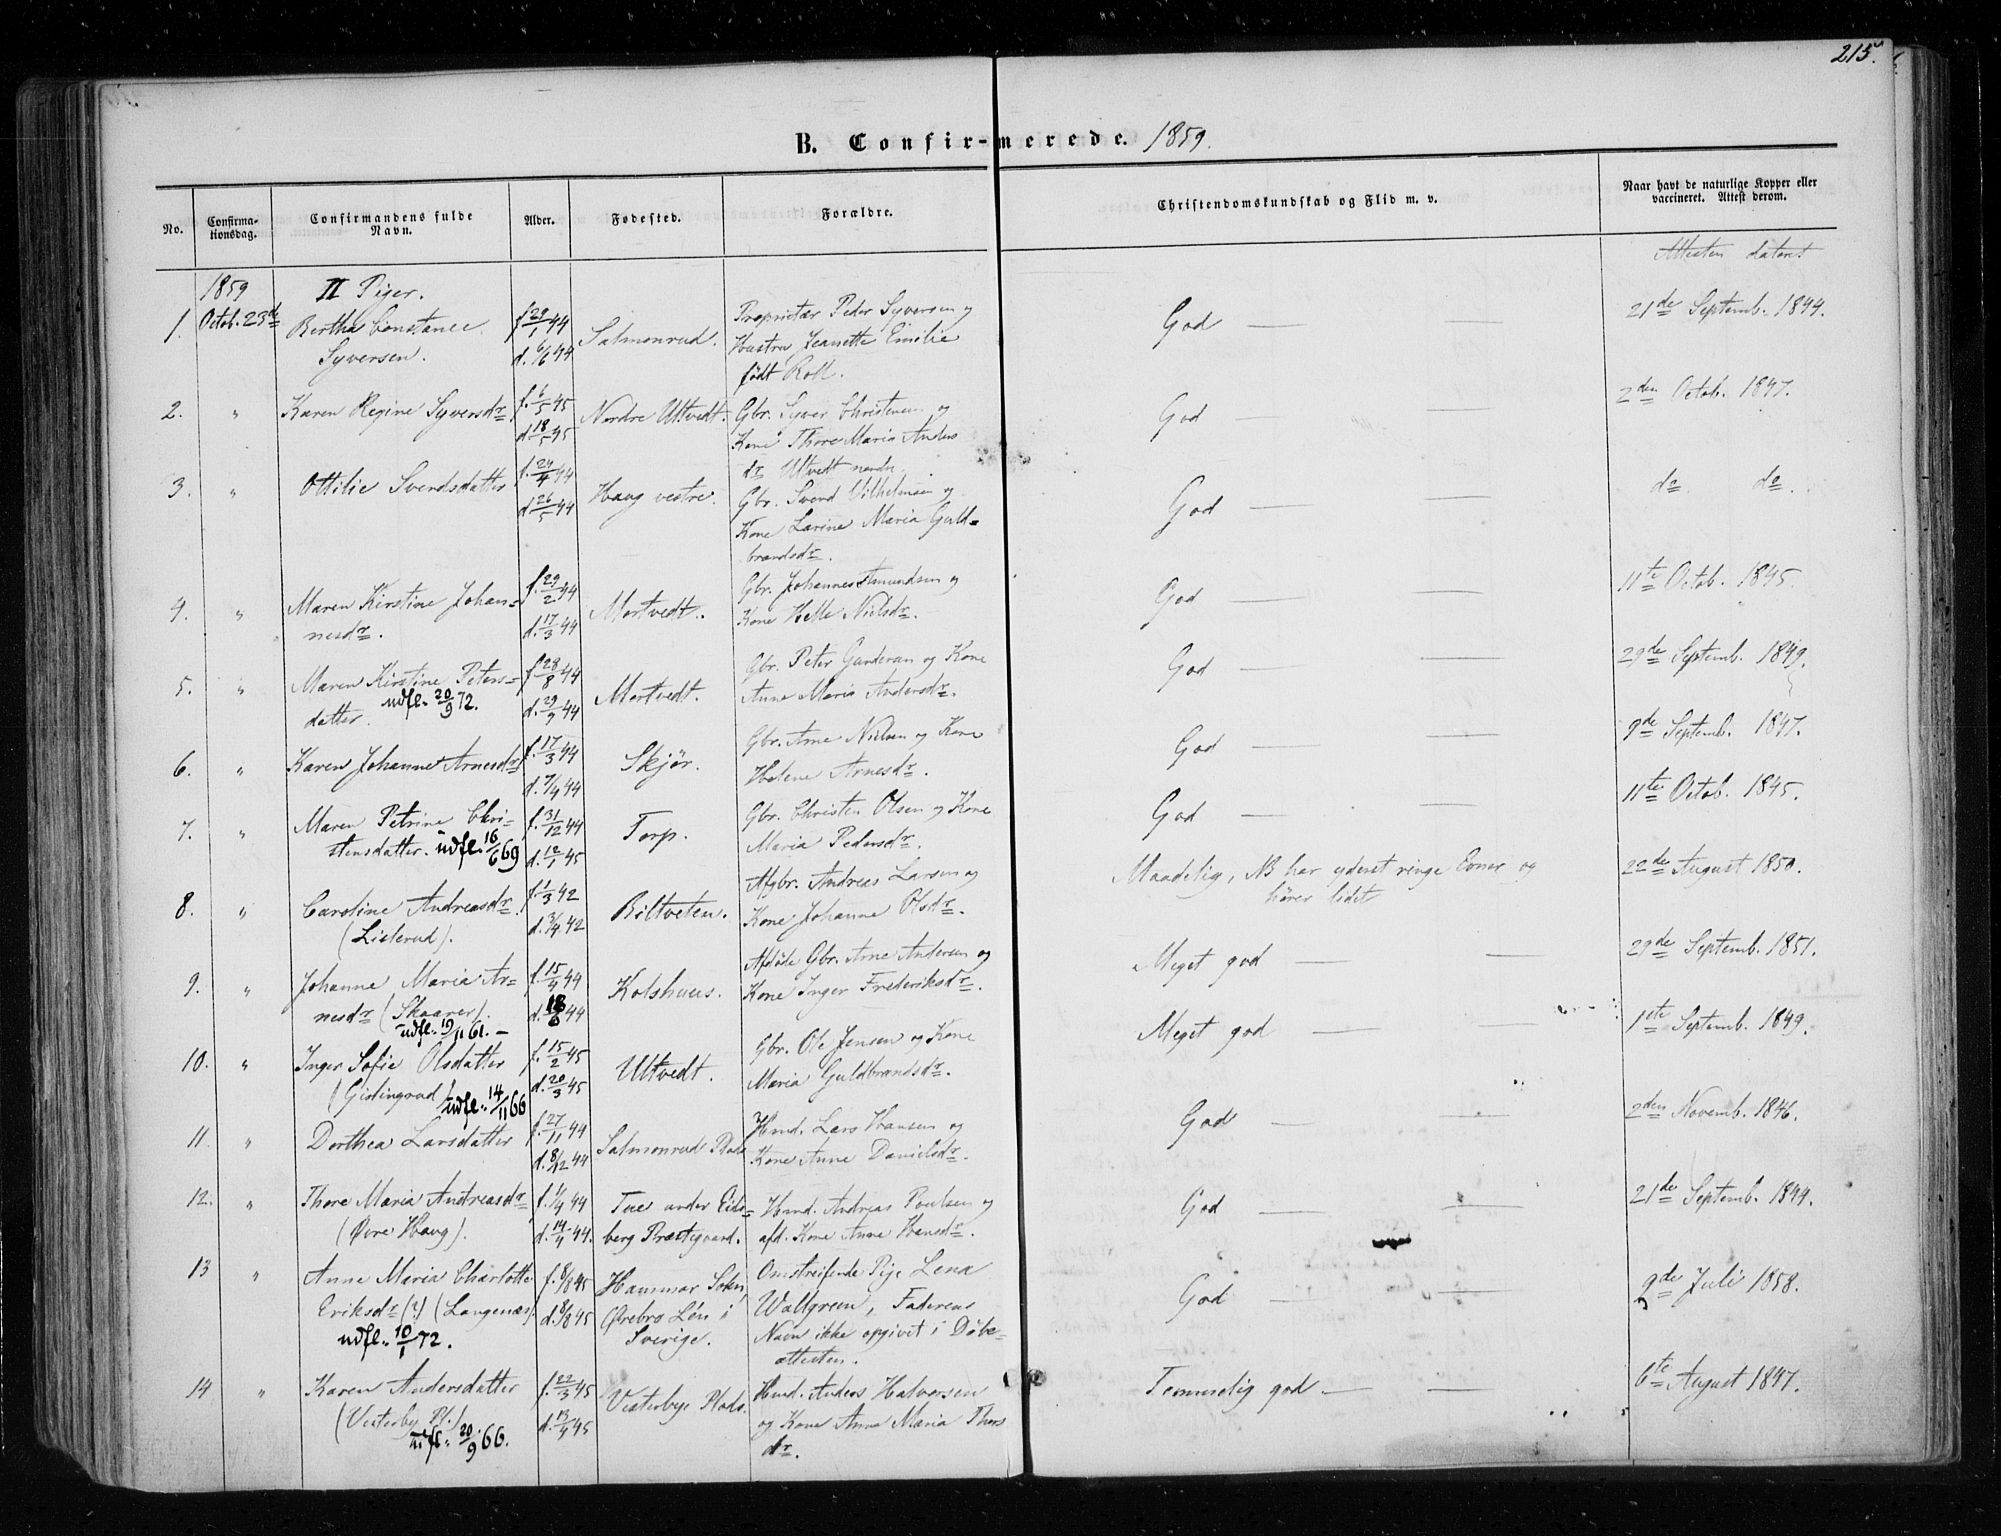 215.
B. Confir-merede. 1859.
No.
Confirma-
tionsdag.
Confirmandens fulde
Navn.
Alder.
Fødested.
Forældre.
Christendomskundskab og Flid m. v.
Naar havt de naturlige Kopper eller
vaccineret. Attest derom.
Attesten dateret
1859 II Piger.
1. Octob. 23de Berthe Constance f. 29/1 44 Salmonrud. Proprietær Peder Syversen og God — — 21de Septemb. 1844.
Syversen. d. 6/6 44 Hustru Jeanette Emilie
født Roll.
2. " Karen Regine Syversdr f. 6/5 45 Nordre Ultvedt. Gbr. Syver Christensen og God — — 2den Octob. 1847.
d. 18/5 45 Kone Thore Maria Anders
dr Ultvedt nordre
3. " Ottilie Svendsdatter f. 24/4 44 Haug vestre. Gbr. Svend Vilhelmsen og God — — do do.
d. 26/5 44 Kone Larine Maria Guld=
brandsdr.
4. " Maren Kirstine Johan= f. 29/2 44 Mortvedt. Gbr. Johannes Amundsen og God — — 11te Octob. 1845.
nesdr. d. 17/3 44 Kone Helle Nielsdr.
5. " Maren Kirstine Peters= f. 28/8 44 Mortvedt. Gbr. Peter Gundersen og Kone God — — 29de Septemb. 1849.
datter. udfl. 20/9 72. d. 29/9 44 Anne Maria Andersdr.
6. " Karen Johanne Arnesdr f. 17/3 44 Skjør. Gbr. Arne Nielsen og Kone God — — 9de Septemb. 1847.
d. 7/4 44 Helene Arnesdr.
7. " Maren Petrine Chri- f. 31/12 44 Torp. Gbr. Christen Olsen og Kone God — — 11te Octob. 1845.
stensdatter. udfl. 16/6 69 d. 12/1 45 Maria Pedersdr.
8. " Caroline Andreasdr. f. 1/3 42 Biltveten. Afgbr. Andreas Larsen og Maadelig, NB har yderst ringe Evner og 22de August 1850.
(Listerud). d. 3/4 42 Kone Johanne Olsdr. hører lidet
9. " Johanne Maria Ar= f. 15/4 44 Kolshuus. Afdøde Gbr. Arne Andersen og Meget god — — 29de Septemb. 1851.
nesdr (Skaarer). d. 18/6 44 Kone Inger Frederiksdr.
udfl. 19/11 61. —
10. " Inger Sofie Olsdatter f. 15/2 45 Ultvedt. Gbr. Ole Jensen og Kone Meget god — — 1ste Septemb. 1849.
(Gislingrud) udfl. 14/11 66 d. 20/3 45 Maria Guldbrandsdr.
11. " Dorthea Larsdatter f. 27/11 44 Salmonrud Plads Hmd. Lars Hansen og God — — 2den Novemb. 1846.
d. 8/12 44 Kone Anne Danielsdr.
12. " Thore Maria Andreasdr f. 1/4 44 Tue under Eids= Hmd. Andreas Poulsen og God — — 21de Septemb. 1844.
(Øvre Haug). d. 14/4 44. berg Præstegaard. afd. Kone Anne Hansdr.
13 " Anne Maria Charlotte f. 8/8 45 Hammar Sokn, Omstreifende Pige Lena God — — 9de Juli 1858.
Eriksdr (?) (Langenæs) d. 8/8 45 Ørebro Len i Wallgreen, Faderens
udfl. 10/1 72. Sverige. Navn ikke opgivet i Døbe=
attesten.
14 " Karen Andersdatter f. 22/3 45 Vesterbye Plads. Hmd. Anders Halvorsen Temmelig god — — 6te August 1847.
(Vesterby Pl.) d. 13/4 45 og Kone Anne Maria Thors
udfl. 20/9 66. dr.